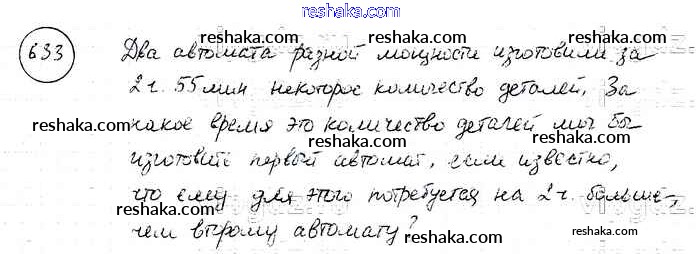 reshaka.com
633 Два автомата разной мощности изготовили за
reshaka.com reshaka.com
2 ч. 55 мин некоторое количество деталей. За
reshaka.com reshaka.com reshaka.com
какое время это количество деталей мог бы
reshaka.com reshaka.com
изготовить первый автомат, если известно,
reshaka.com reshaka.com reshaka.com
что ему для этого потребуется на 2 ч. больше,
reshaka.com reshaka.com
чем второму автомату?
reshaka.com